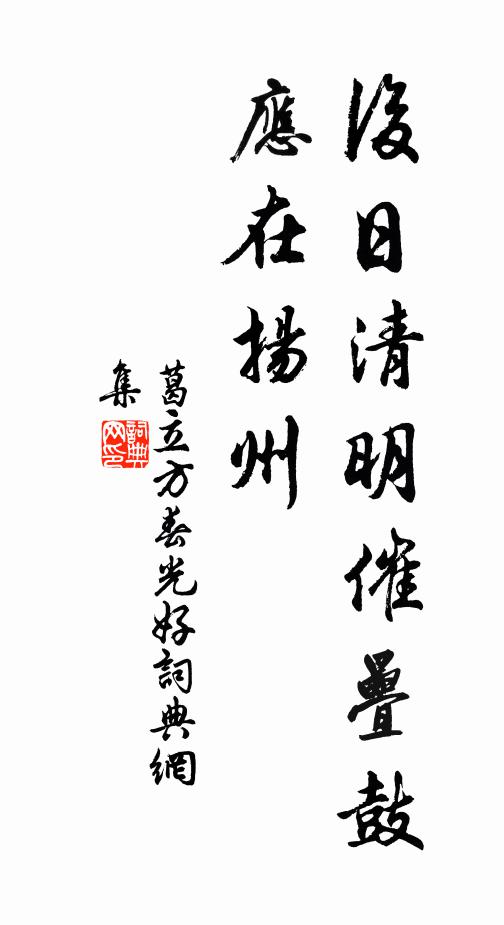 後日清明催疊鼓
應在揚州
葛立方春光好詞典網
集
詞典
网印